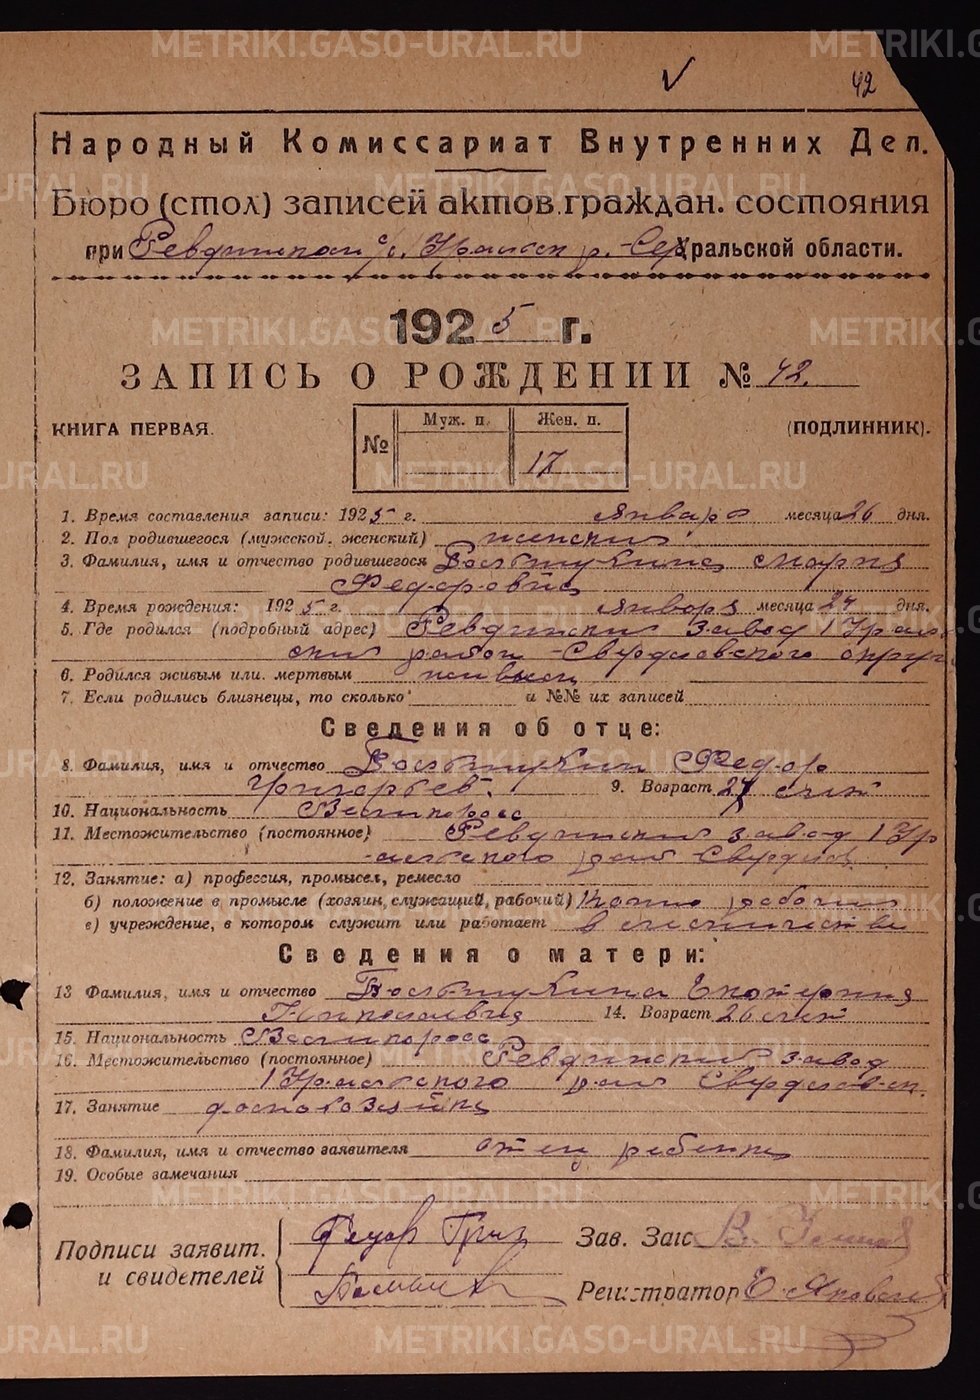 42
Народный Комиссариат Внутренних Дел.
Бюро (стол) записей актов граждан. состояния
при Ревдинском с/с. р. Уральской области.
1925 г.
ЗАПИСЬ О РОЖДЕНИИ № 42.
КНИГА ПЕРВАЯ. (ПОДЛИННИК).
№ Муж. п. Жен. п.
17
1. Время составления записи: 1925 г. января месяца 26 дня.
2. Пол родившегося (мужской, женский) женский
3. Фамилия, имя и отчество родившегося Мария
Федоровна
4. Время рождения: 1925 г. января месяца 24 дня.
5. Где родился (подробный адрес) Ревдинский завод 1 Ураль-
ский район Свердловского округа
6. Родился живым или мертвым живым
7. Если родились близнецы, то сколько и №№ их записей
Сведения об отце:
8. Фамилия, имя и отчество Федор
Григорьев. 9. Возраст 27 лет
10. Национальность Великоросс
11. Местожительство (постоянное) Ревдинский завод 1 Ур
-альского рай Свердлов.
12. Занятие: а) профессия, промысел, ремесло
б) положение в промысле (хозяин, служащий, рабочий) рабочий
в) учреждение, в котором служит или работает в лесничестве
Сведения о матери:
13 Фамилия, имя и отчество Екатерина
14. Возраст 26 лет
15. Национальность Великоросс
16. Местожительство (постоянное) Ревдинский завод
1 Уральского рай Свердловск.
17. Занятие домохозяйка
18. Фамилия, имя и отчество заявителя отец ребенка
19. Особые замечания
Подписи заявит. и свидетелей Федор Григ
Зав. Загс В.
Регистратор
METRIKI.GASO-URAL.RU